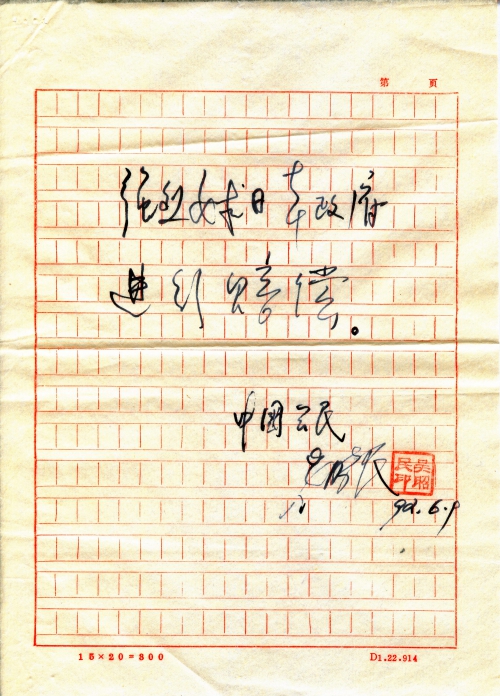 第 頁
强烈要求日本政府
进行赔偿。
中国公民
吴昭民
吴昭民印
92.6.9
15×20=300
D1.22.914